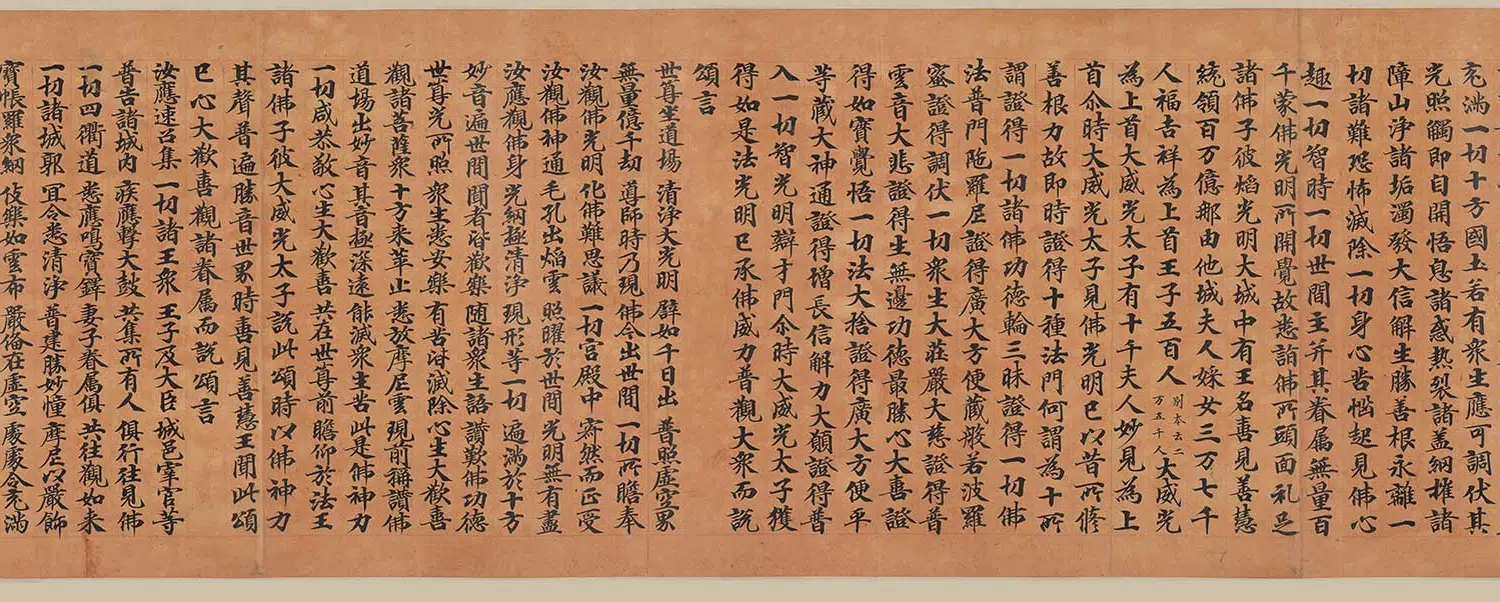 充滿一切十方國土若有衆生應可調伏其
光照觸即自開悟息諸惑熱裂諸盖網摧諸
障山淨諸垢濁發大信解生勝善根永離一
切諸難恐怖滅除一切身心苦惱起見佛心
趣一切智時一切世間主并其眷屬無量百
千蒙佛光明所開覺故悉詣佛所頭面礼足
諸佛子彼焰光明大城中有王名喜見善慧
統領百万億那由他城夫人婇女三万七千
人福吉祥為上首王子五百人別本云二万五千人大威光
為上首大威光太子有十千夫人妙見為上
首尒時大威光太子見佛光明已以昔所修
善根力故即時證得十種法門何謂為十所
謂證得一切諸佛功德輪三昧證得一切佛
法普門陁羅尼證得廣大方便藏般若波羅
蜜證得調伏一切衆生大莊嚴大慈證得普
雲音大悲證得生無邊功德最勝心大喜證
得如實覺悟一切法大捨證得廣大方便平
等藏大神通證得增長信解力大願證得普
入一切智光明辯才門尒時大威光太子獲
得如是法光明已承佛威力普觀大衆而說
頌言
世尊坐道場 清淨大光明 譬如千日出 普照虛空界
無量億千劫 導師時乃現 佛今出世間 一切所瞻奉
汝觀佛光明 化佛難思議 一切宮殿中 寂然而正受
汝觀佛神通 毛孔出焰雲 照曜於世間 光明無有盡
汝應觀佛身 光網極清淨 現形等一切 遍滿於十方
妙音遍世間 聞者皆歡樂 随諸衆生語 讚歎佛功德
世尊光所照 衆生悉安樂 有苦皆滅除 心生大歡喜
觀諸菩薩衆 十方来萃止 悉放摩尼雲 現前稱讚佛
道場出妙音 其音極深遠 能滅衆生苦 此是佛神力
一切咸恭敬 心生大歡喜 共在世尊前 瞻仰於法王
諸佛子彼大威光太子說此頌時以佛神力
其聲普遍勝音世界時喜見善慧王聞此頌
已心大歡喜觀諸眷屬而說頌言
汝應速召集 一切諸王衆 王子及大臣 城邑宰官等
普告諸城內 疾應擊大鼓 共集所有人 俱行往見佛
一切四衢道 悉應鳴寶鐸 妻子眷屬俱 共往觀如来
一切諸城郭 冝令悉清淨 普建勝妙幢 摩尼以嚴飾
寶帳羅衆網 伎樂如雲布 嚴俻在虛空 處處令充滿